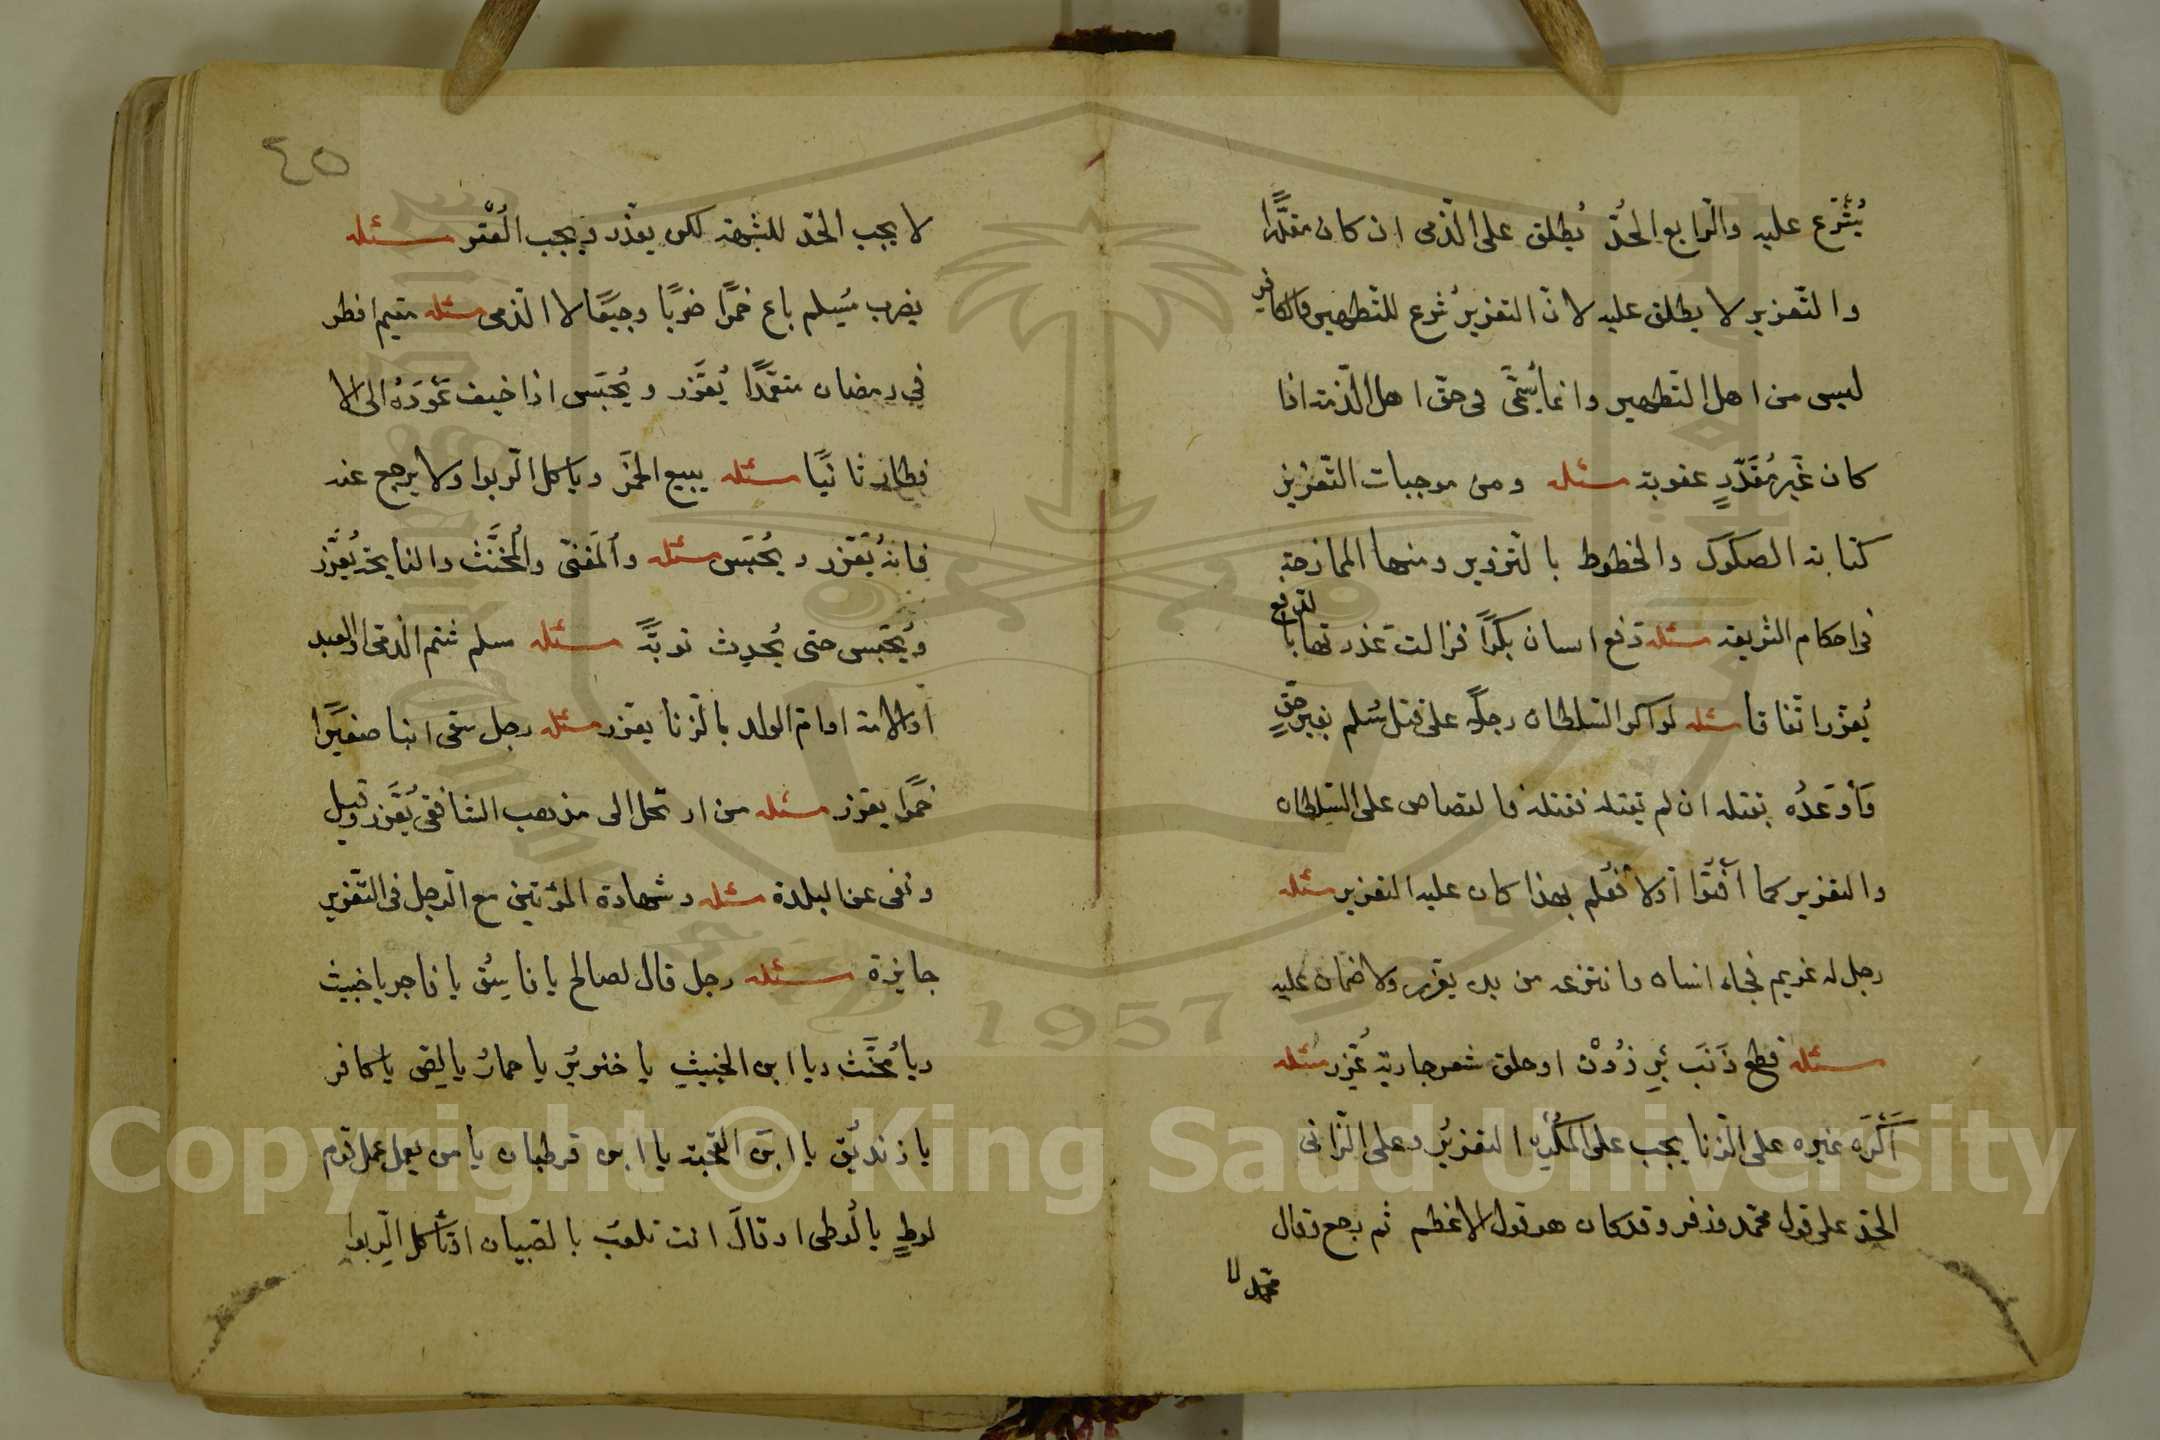 يُشْرَع عليه والرّابع الحُدّ يُطلق على الذّمى ان كان مقدَّرًا
والتّعزير لا يطلق عليه لانّ التعزيرُ شرع للتّطهير والكافر
ليس من اهل التّطهير وانما يُسَمَّى فى حقّ اهل الذّمة اذا
كان غَير مُقَدَّرٍ عقوبة مسئله ومن موجبات التّعزيز
كتابة الصكوك والخطوط بالتّزوير ومنها الممازحة
فى احكام الشريعة مسئله دفع انسان بكرًا فزالت عذرتها بالدفع
يُعزّر اتّفاقا مسئله لو اكره السّلطان رجلًا على قتل مُسلم بغير حقٍّ
وَأوعَدُه بقتله ان لم يقتله فقتله فالقصاص على السّلطان
والتعزير كما أفتُوا أولا فعُلم بهذا كان عليه التعزير مسئله
رجل له غريم فجاء انسان وانتزعه من يده يعزر ولا ضمان عليه
مسئله قطع ذَنَبَ بَرِذُوْن او حلق شعر جارية عُزِّر مسئله
أكرَه غيره على الزّنا يجب على المكُرِه التعزيُر وعلى الزّانى
الحدّ على قول محمّد وزفر وقد كان هو قول الاعظم ثم رجع وقال
محمّد لا
٤٥
لا يجب الحدّ للشبهة لكن يعزّر ويجب العُقر مسئله
يضرب مُسِلم باع خمرًا ضربًا وجيعًا لا الذّمى مسئله مقيم افطر
في رمضان متعمّدًا يُعزَّر ويُحبَس اذا خيف عَوَدَهُ الى الا
فطار ثانيًا مسئله يبيع الخمَر وياكل الرّبوا ولا يرجع عنه
فانهُ يُعَزّر ويُحبَس مسئله والمَغنّى والمُخنَّث والنايحة يُعَزَّر
ويُحبَس حتى يُحدِث توبةً مسئله مسلم شتم الذّمى او العبد
أو الامة او ام الولد بالزّنا يعزر مسئله رجل سقى ابنا صغيًرا
خمرًا يعزر مسئله من ارتحل الى مذهب الشافعى يُعَّزر وقيل
ونفى عن البلدة مسئله وشهادة المرئتين مع الرّجل فى التّعزير
جايزة مسئله رجل قال لصالح يا فاسِق يا فاجر يا خبيث
ويا مُخنَّث ويا ابن الخبيثِ يا خنزيرُ يا حمارُ يا لِصّ يا كافر
يا زنديُق يا ابن القحبة يا ابن قرطبان يا من يعمل عمل قوم
لوطٍ يا لُوطى او قالَ انت تلعبَ بالصبيان او تأكل الرّبوا